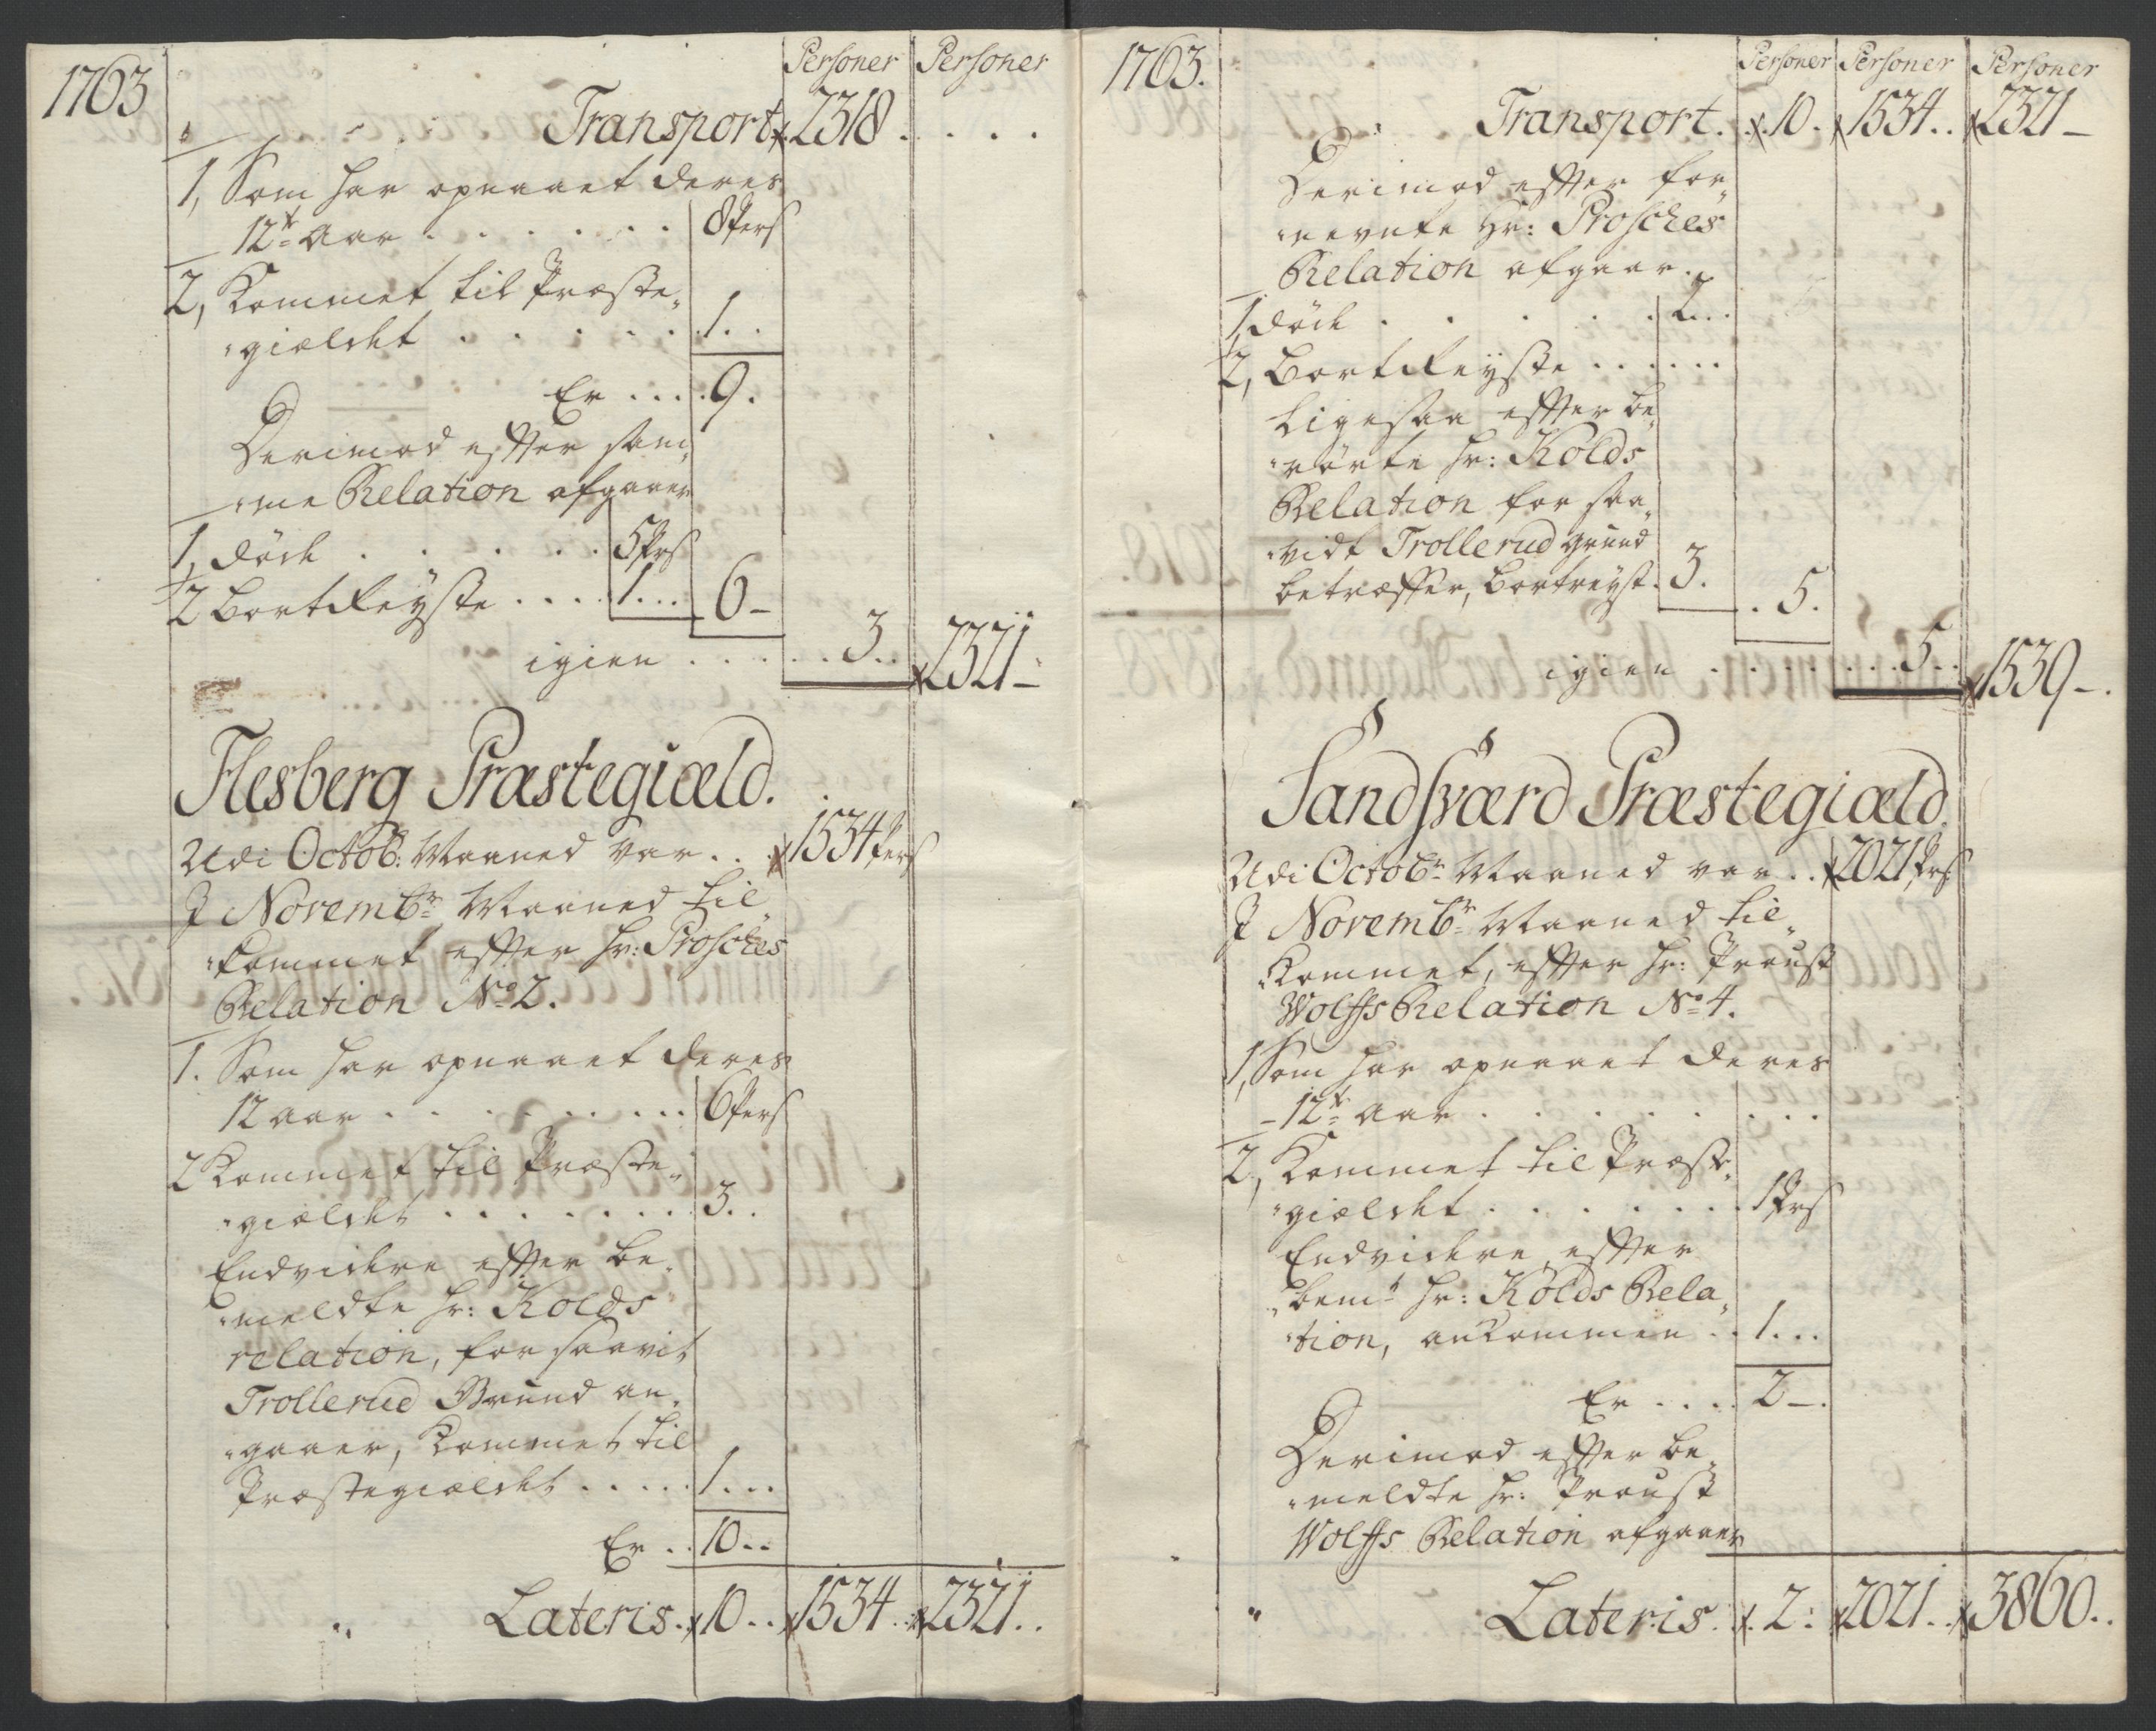 1763
Personer Personer
Transport 2318 . . . .
1, Som har opnaaet deres
12te Aar . . . . . . 8 Pers
2, Kommet til Præste„
„gieldet . . . . . . 1 . .
Er . . . . 9 .
Derimod efter sam„
„me Relation afgaaer
1, døde . . . . . 5 Prs
2 Bortreyste . . . . 1 . . . 6 –
igien . . . . . . 3 . . 2321 –
Flesberg Præstegiæld.
Udi Octob: Maaned var . . 1534 Pers
I Novembr. Maaned til
„kommet efter Hr: Prosches
Relation No 2.
1. Som har opnaaet deres
12 Aar . . . . . . . . . 6 Pers
2 Kommet til Præste„
„gieldet . . . . . . . 3 . .
Endvidere efter be„
„meldte Hr: Kolds
relation, for saavit
Trollerud Grund an„
„gaaer, Kommet til
Præstegieldet . . . . . 1 . . .
Er . . 10 . .
Lateris . 10 . . 1534 . . 2321 . .
1763.
Personer Personer Personer
Transport. 10 . 1534 . . 2321 –
Derimod efter for„
„nevnte Hr: Prosches
Relation afgaar .
1, døde . . . . . . 2 . . .
2, Bortreyste . . . . . .
Ligesaa efter be„
„rørte Hr: Kolds
Relation for saa„
„vidt Trollerud Grund
betræffer, bortreyst . 3 . . 5 .
igien . . . . . . . 5 . . 1539 – .
Sandsværd Præstegiæld.
Udi Octobr. Maaned var . . 2021 Prs
I Novembr. Maaned til„
„Kommet, efter Hr: Proust
Wolffs Relation No 4.
1, Som har opnaaet deres
12te Aar . . . . . . . . .
2, Kommet til Præste„
„gieldet . . . . . . . 1 Prs
Endvidere efter
bemte Hr: Kolds Rela„
„tion, ankommen . . 1 . . .
Er . . . . 2 – .
Derimod efter be„
„meldte Hr: Proust
Wolffs Relation afgaaer
Lateris . 2 : 2021 . . 3860 . .